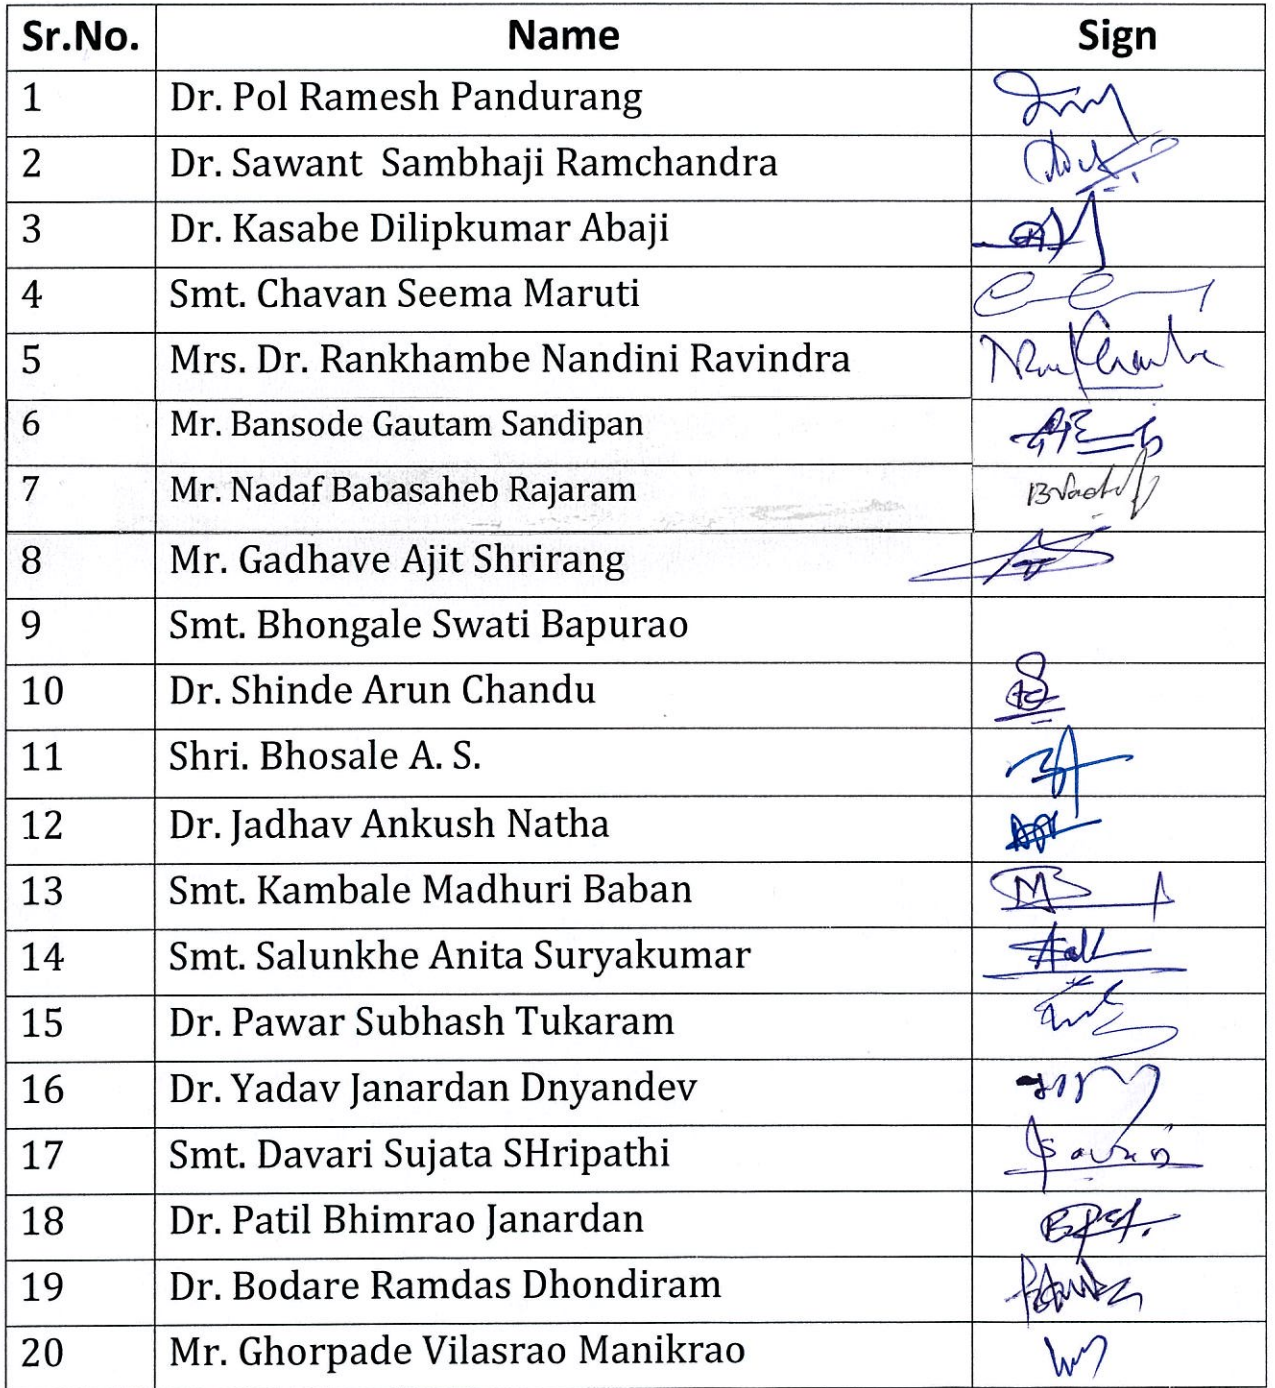 Sr.No. Name Sign
1 Dr. Pol Ramesh Pandurang
2 Dr. Sawant Sambhaji Ramchandra
3 Dr. Kasabe Dilipkumar Abaji
4 Smt. Chavan Seema Maruti
5 Mrs. Dr. Rankhambe Nandini Ravindra
6 Mr. Bansode Gautam Sandipan
7 Mr. Nadaf Babasaheb Rajaram
8 Mr. Gadhave Ajit Shrirang
9 Smt. Bhongale Swati Bapurao
10 Dr. Shinde Arun Chandu
11 Shri. Bhosale A. S.
12 Dr. Jadhav Ankush Natha
13 Smt. Kambale Madhuri Baban
14 Smt. Salunkhe Anita Suryakumar
15 Dr. Pawar Subhash Tukaram
16 Dr. Yadav Janardan Dnyandev
17 Smt. Davari Sujata SHripathi
18 Dr. Patil Bhimrao Janardan
19 Dr. Bodare Ramdas Dhondiram
20 Mr. Ghorpade Vilasrao Manikrao